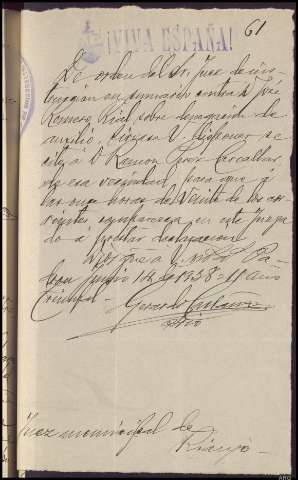 ¡VIVA ESPAÑA!
61
De orden del Sr. Juez de ins-
trucción en sumario contra D. José
Romero Rial sobre denegación de
auxilio, sírvase V. disponer se
cite a D. Ramon
de esa vecindad para que a
las once horas de veinte de los co-
rrientes comparezca en este Juzga-
do á prestar declaración
Dios gue a V. m. a. Pa-
dron Junio 14 de 1938 - II año
Triunfal -
Gerardo
Juez municipal de
Rianjo -